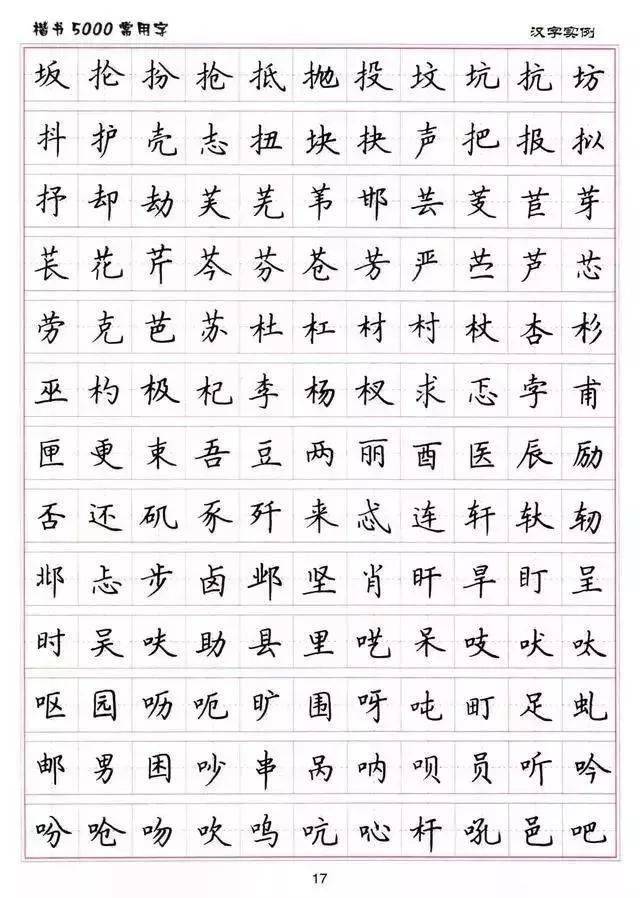 楷书5000常用字 汉字实例
坂抡扮抢抵抛投坟坑抗坊
抖护壳志扭块抉声把报拟
抒却劫芙芜苇邯芸芰苣芽
苌花芹芩芬苍芳严苎芦芯
劳克芭苏杜杠材村杖杏杉
巫杓极杞李杨杈求忑孛甫
匣更束吾豆两丽酉医辰励
否还矶豕歼来忒连轩轪轫
邶忐步卤邺坚肖旰旱盯呈
时吴呋助县里呓呆吱吠呔
呕园呖呃旷围呀吨町足虬
邮男困吵串呙呐呗员听吟
吩呛吻吹呜吭吣杆吼邑吧
17